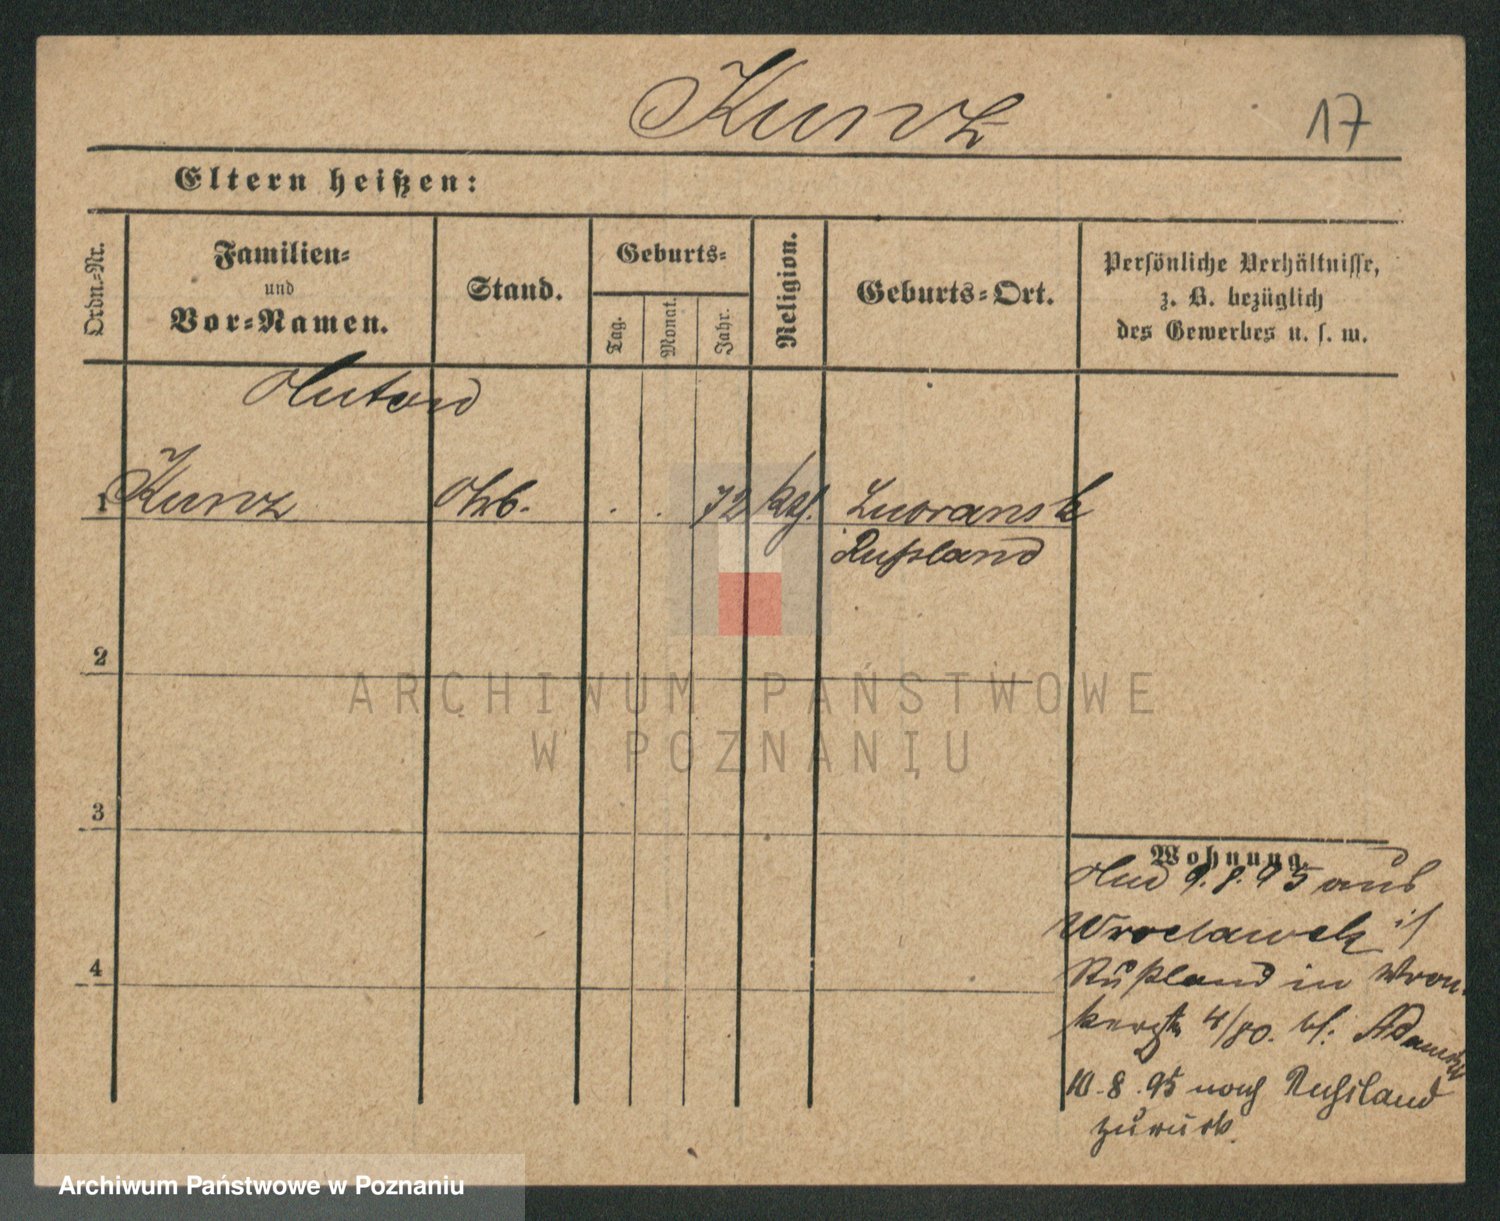 Kunz
17
Eltern heißen:
Ordn.-Nr.
Familien-
und
Vor-Namen.
Stand.
Geburts-
Tag.
Monat.
Jahr.
Religion.
Geburts-Ort.
Persönliche Verhältnisse,
z. B. bezüglich
des Gewerbes u. s. w.
1 Kunz . . 72
Rußland
2
3
4
Wohnung.
9.8.95 aus
Wroclawek
Rußland in Wron-
kerstr 4/80. bl:
10.8.95 nach Russland
zurück.
ARCHIWUM PAŃSTWOWE
W POZNANIU
Archiwum Państwowe w Poznaniu